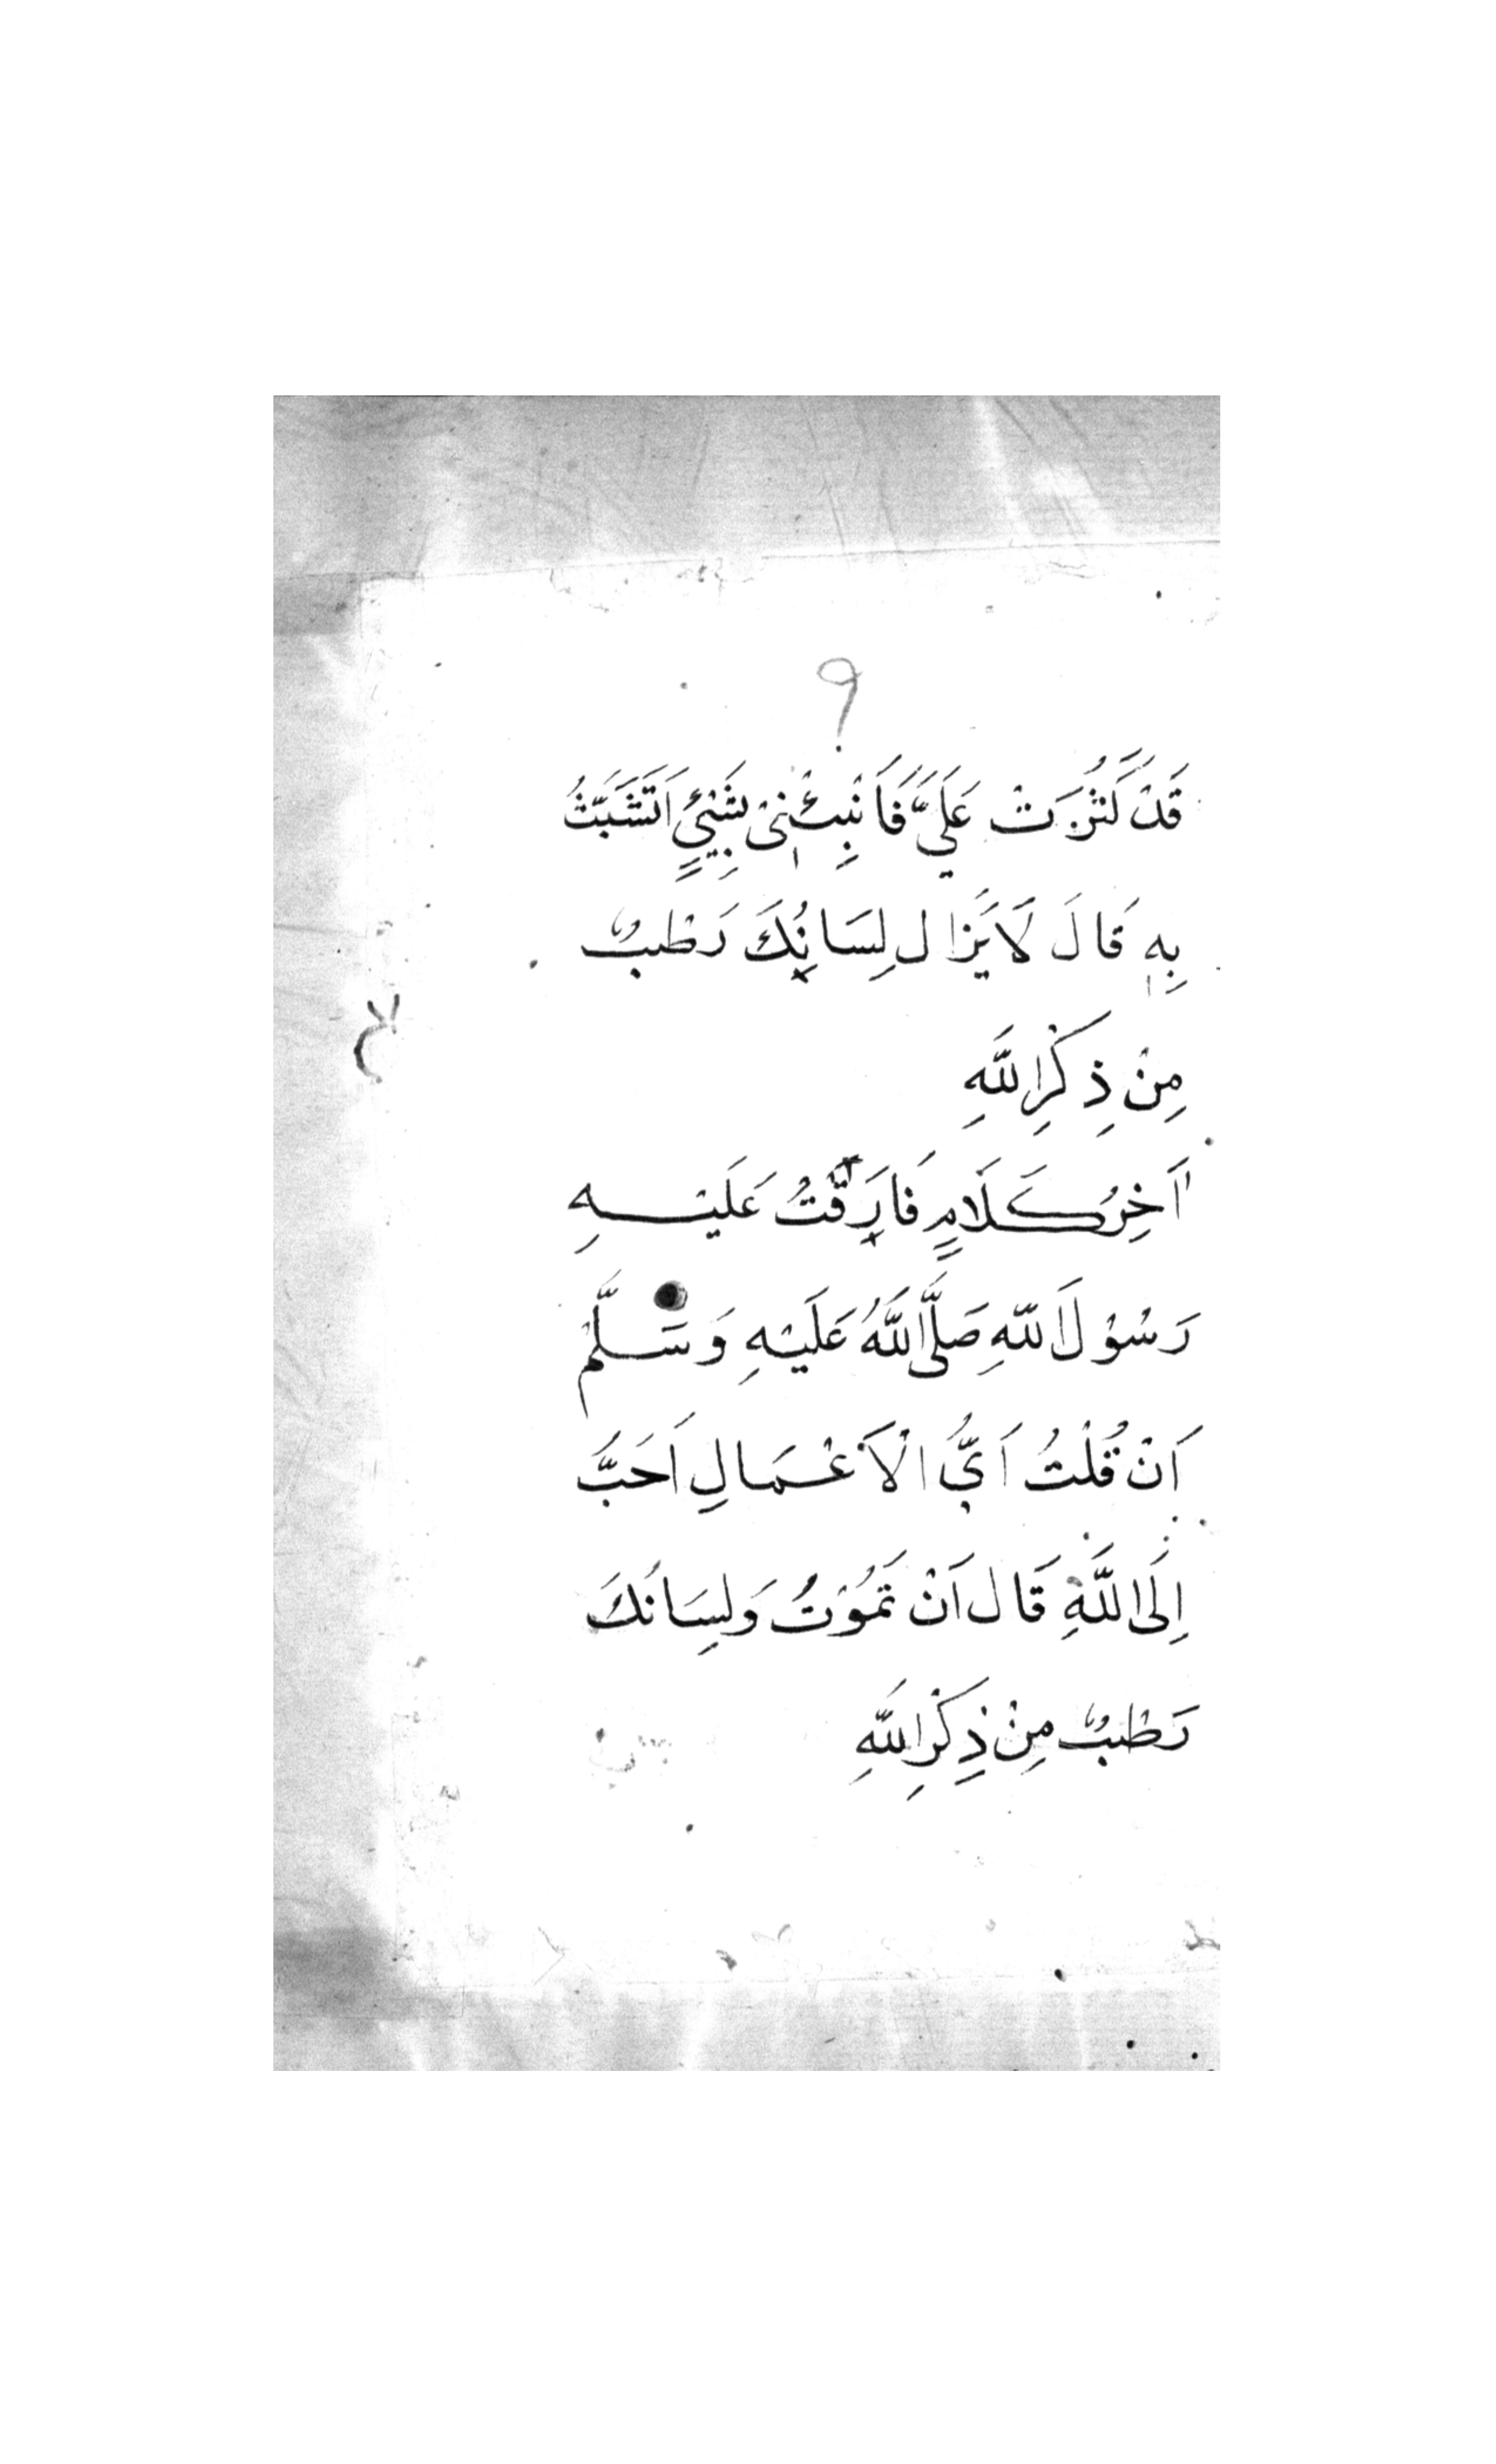 ٩
قَدْ كَثُرَتْ عَلَيَّ فَاَنْبِئْنِىْ بِشَيْئٍ اَتَشَبَّثُ
بِهٖ قَالَ لَا يَزَال لِسَانُكَ رَطْبٌ
مِنْ ذِكْرِ اللّٰهِ
اٰخِرُ كَلَامٍ فَارَقْتُ عَلَيْهِ
رَسُوْلَ اللّٰهِ صَلَّى اللّٰهُ عَلَيْهِ وَسَلَّمْ
اَنْ قُلْتُ اَيُّ الْاَعْمَالِ اَحَبُّ
اِلَى اللّٰهِ قَال اَنْ تَمُوْتُ وَلِسَانَكَ
رَطْبٌ مِنْ ذِكْرِ اللّٰهِ